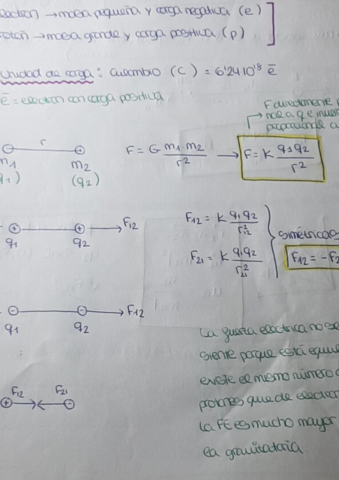 electrón → masa pequeña y carga negativa (e)
protón → masa grande y carga positiva (p)
unidad de carga: culombio (C) = 6'24·10¹⁸ e̅
e̅ = electrón con carga positiva
F directamente
r
F = G m₁ m₂ / r² → F = K q₁q₂ / r²
m₁ m₂
q₁) (q₂)
F₁₂ F₁₂ = K q₁q₂ / r₁₂²
q₁ q₂ simétricas
F₂₁ = K q₁q₂ / r₂₁² F₁₂ = -F₂
F₁₂
q₁ q₂
La fuerza eléctrica no se
siente porque está equi
existe el mismo número
F₁₂ F₂₁ protones que de electron
La FE es mucho mayor
la gravitatoria